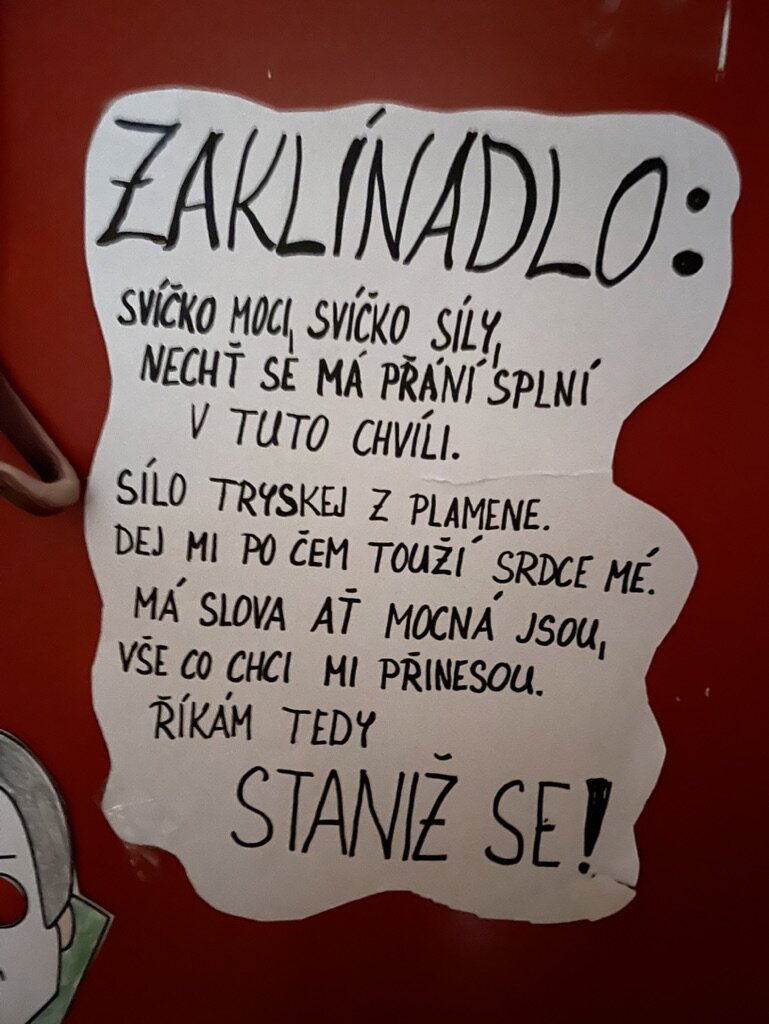 ZAKLÍNADLO:
SVÍČKO MOCI, SVÍČKO SÍLY,
NECHŤ SE MÁ PŘÁNÍ SPLNÍ
V TUTO CHVÍLI.
SÍLO TRYSKEJ Z PLAMENE.
DEJ MI PO ČEM TOUŽÍ SRDCE MÉ.
MÁ SLOVA AŤ MOCNÁ JSOU,
VŠE CO CHCI MI PŘINESOU.
ŘÍKÁM TEDY
STANIŽ SE!